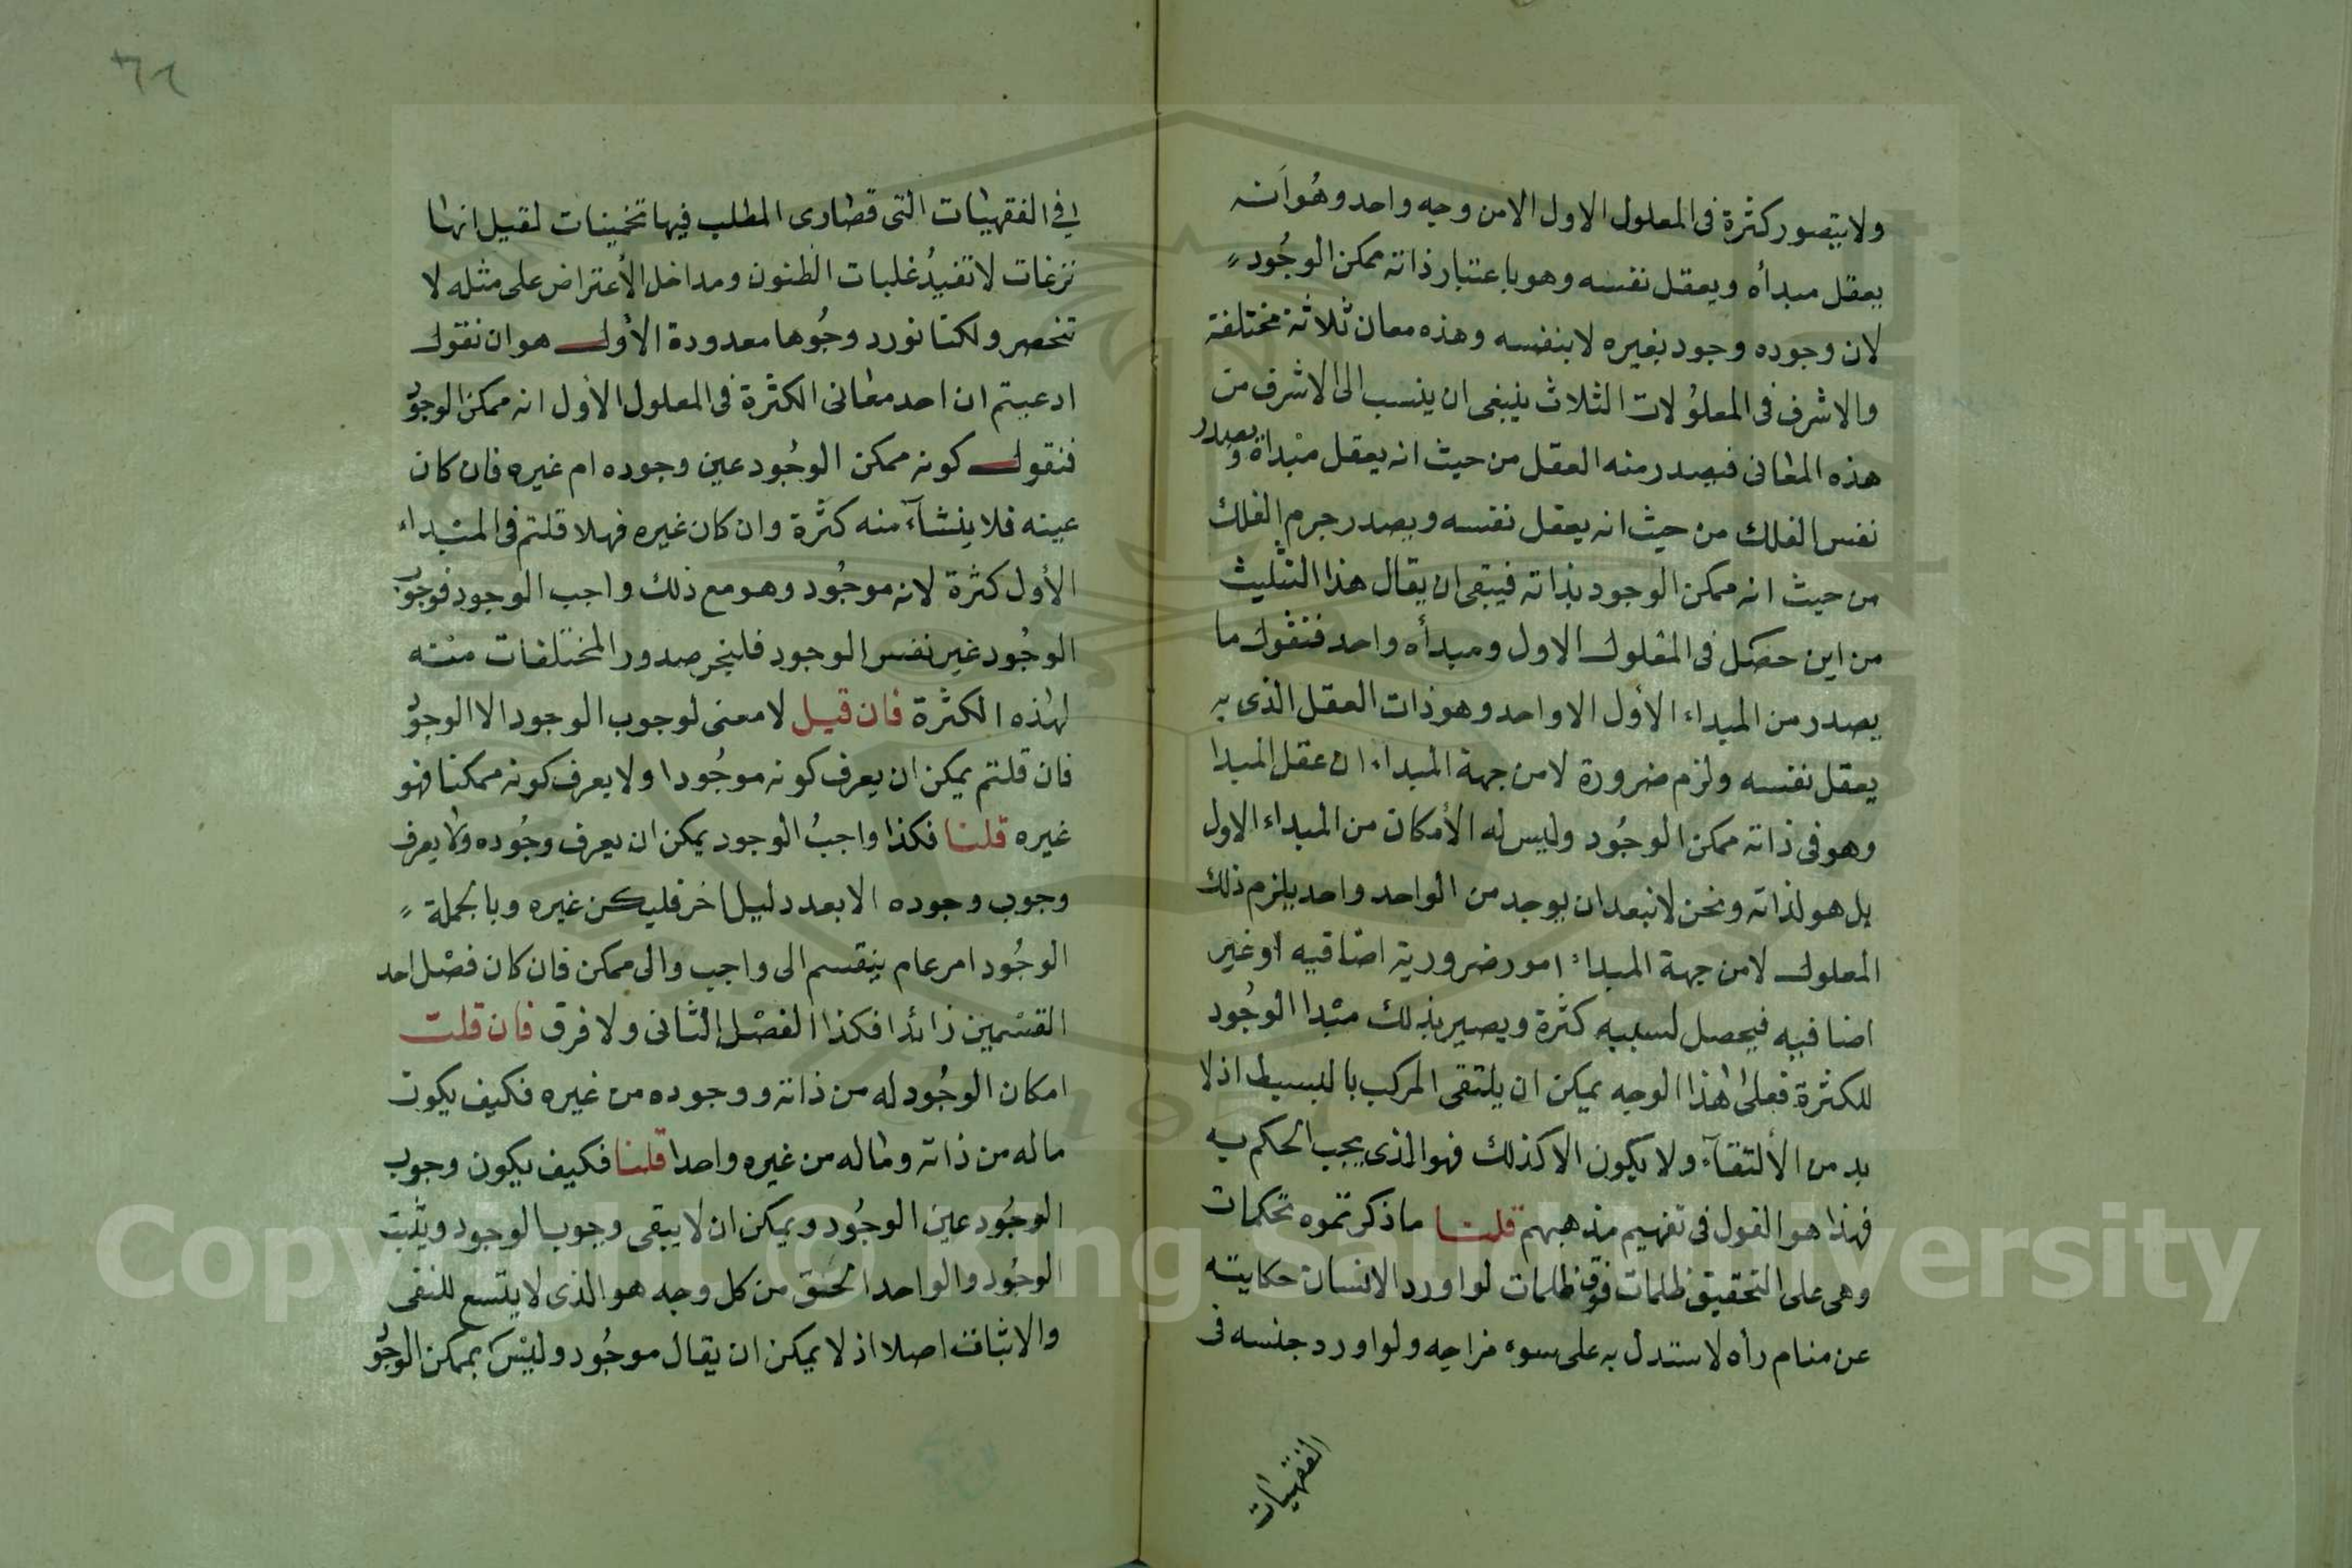 ولا يتصور كثرة في المعلول الاول الا من وجه واحد وهو انه
يعقل مبدأه ويعقل نفسه وهو باعتبار ذاته ممكن الوجود
لان وجوده وجود بغيره لا بنفسه وهذه معان ثلاثة مختلفة
والاشرف في المعلولات الثلاث ينبغي ان ينسب الى الاشرف من
هذه المعاني فيصدر منه العقل من حيث انه يعقل مبداه ويصدر
نفس الفلك من حيث انه يعقل نفسه ويصدر جرم الفلك
من حيث انه ممكن الوجود بذاته فيبقى ان يقال هذا التثليث
من اين حصل في المعلول الاول ومبدأه واحد فنقول ما
يصدر من المبداء الأول الا واحد وهو ذات العقل الذي به
يعقل نفسه ولزم ضرورة لا من جهة المبداء ان عقل المبدا
وهو في ذاته ممكن الوجود وليس له الأمكان من المبداء الاول
بل هو لذاته ونحن لا نبعد ان يوجد من الواحد واحد يلزم ذلك
المعلول لا من جهة المبداء امور ضرورية اضافيه او غير
اضافيه فيحصل لسببه كثرة ويصير بذلك مبدا الوجود
للكثرة فعلى هذا الوجه يمكن ان يلتقى المركب بالبسيط اذ لا
بد من الألتقآء ولا يكون الا كذلك فهو الذى يجب الحكم به
فهذا هو القول في تفهيم مذهبهم قلنا ما ذكرتموه تحكمات
وهى على التحقيق ظلمات فوق ظلمات لو اورد الانسان حكايته
عن منام رأه لاستدل به على سوء مزاجه ولو اورد جنسه في
الفقهيات
في الفقهيات التى قصارى المطلب فيها تخمينات لقيل انها
نزغات لا تفيد غلبات الظنون ومداخل الأعتراض على مثله لا
تنحصر ولكنا نورد وجوها معدودة الأول هو ان نقول
ادعيتم ان احد معانى الكثرة في المعلول الأول انه ممكن الوجود
فنقول كونه ممكن الوجود عين وجوده ام غيره فان كان
عينه فلا ينشآء منه كثرة وان كان غيره فهلا قلتم في المبداء
الأول كثرة لانه موجود وهو مع ذلك واجب الوجود فوجوب
الوجود غير نفس الوجود فليجز صدور المختلفات منه
لهذه الكثرة فان قيل لا معنى لوجوب الوجود الا الوجود
فان قلتم يمكن ان يعرف كونه موجودا ولا يعرف كونه ممكنا فهو
غيره قلنا فكذا واجب الوجود يمكن ان يعرف وجوده ولا يعرف
وجوب وجوده الا بعد دليل اخر فليكن غيره وبالجملة
الوجود امر عام ينقسم الى واجب والى ممكن فان كان فصل احد
القسمين زائدا فكذا الفصل الثانى ولا فرق فان قلت
امكان الوجود له من ذاته ووجوده من غيره فكيف يكون
ماله من ذاته وماله من غيره واحدا قلنا فكيف يكون وجوب
الوجود عين الوجود ويمكن ان لا يبقى وجوب الوجود ويثبت
الوجود والواحد الحق من كل وجه هو الذى لا يتسع للنفى
والاثبات اصلا اذ لا يمكن ان يقال موجود وليس بممكن الوجود
Copyright © King Saud University
1957